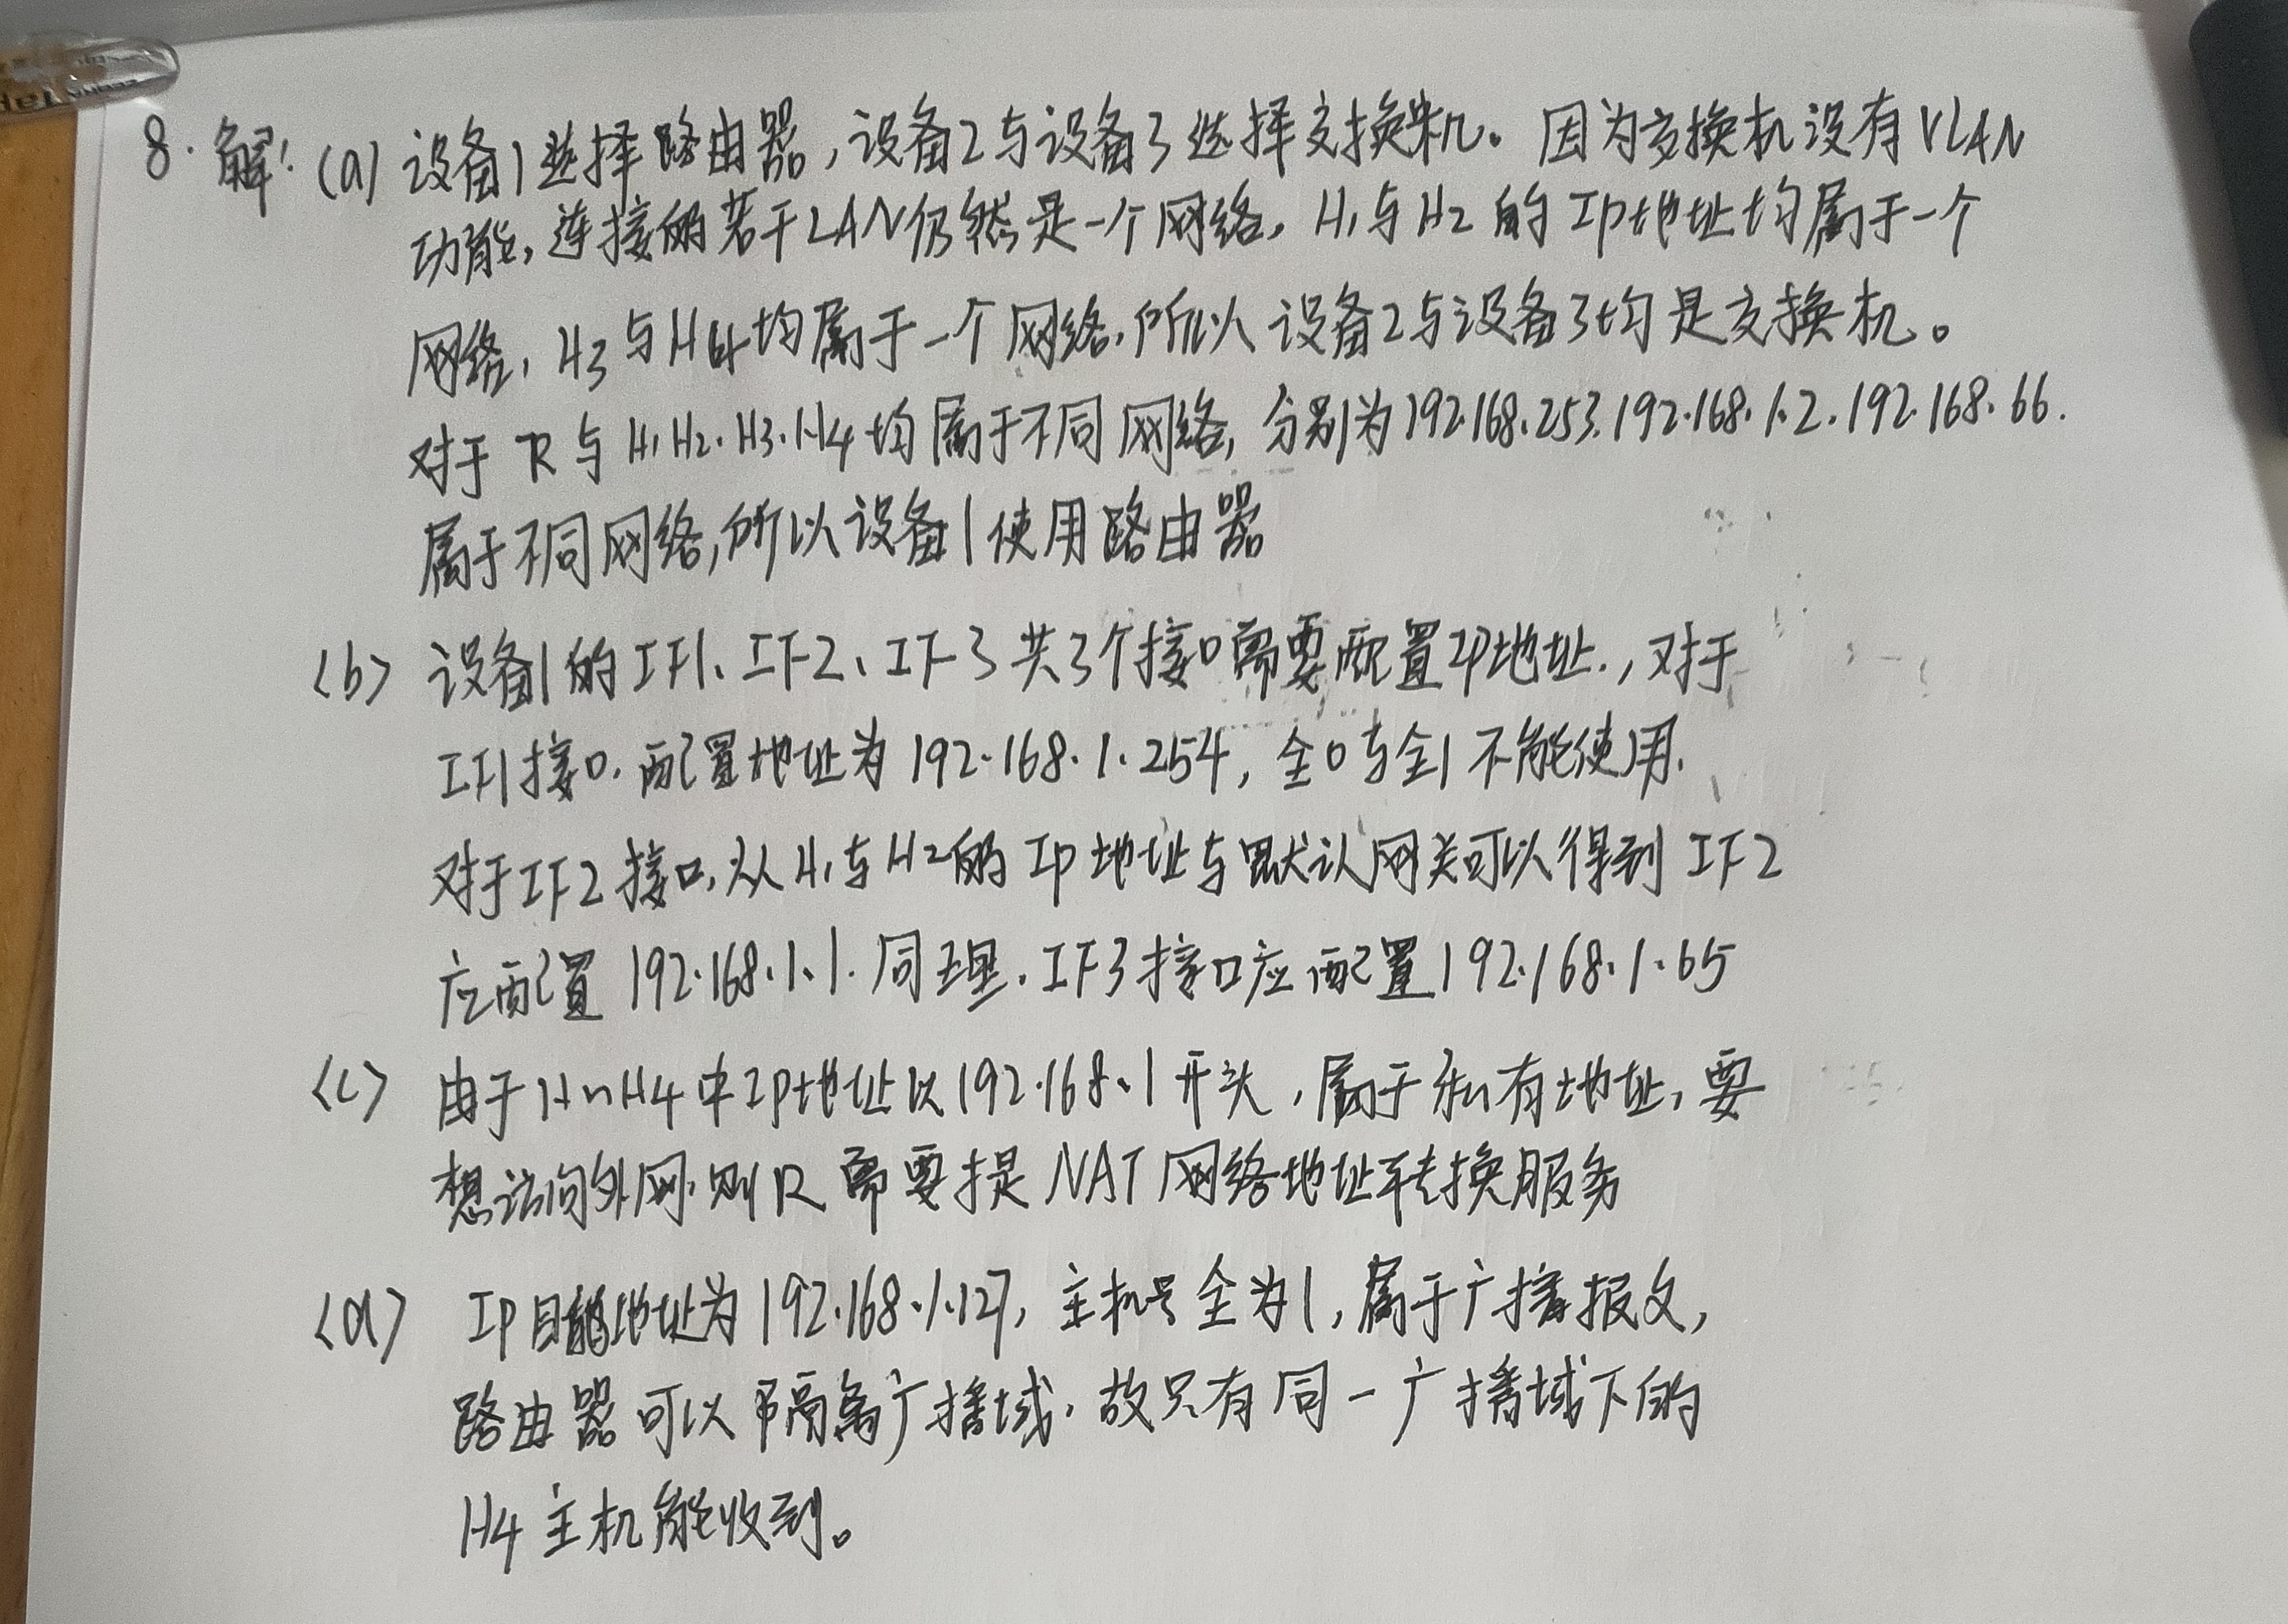 8. 解: (a) 设备1选择路由器,设备2与设备3选择交换机。因为交换机没有VLAN
功能,连接的若干LAN仍然是一个网络,H1与H2的IP地址均属于一个
网络,H3与H4均属于一个网络,所以设备2与设备3均是交换机。
对于R与H1.H2.H3.H4均属于不同网络,分别为192.168.253.192.168.1.2.192.168.66.
属于不同网络,所以设备1使用路由器
<b> 设备1的IF1、IF2、IF3共3个接口需要配置IP地址.,对于
IF1接口.配置地址为192.168.1.254,全0与全1不能使用.
对于IF2接口,从H1与H2的IP地址与默认网关可以得到IF2
应配置192.168.1.1.同理.IF3接口应配置192.168.1.65
<c> 由于H1~H4中IP地址以192.168.1开头,属于私有地址,要
想访问外网.则R需要提NAT网络地址转换服务
<d> IP目的地址为192.168.1.127,主机号全为1,属于广播报文,
路由器可以隔离广播域,故只有同一广播域下的
H4主机能收到。